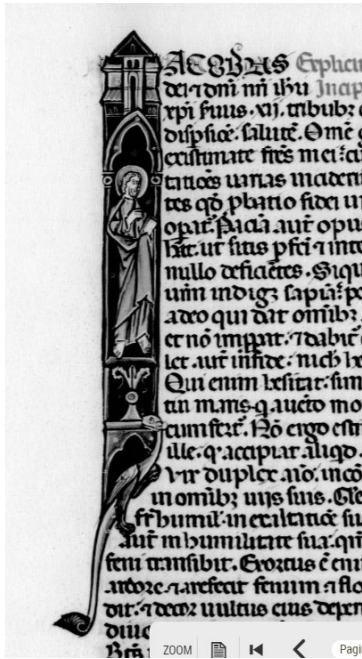 ACOBUS Explicit
dei ⁊ dn̄i nr̄i ih̄u Incip
xp̄i ẜuus .xij. tribubꝫ
dispersiōe. salutē. Om̄e
existimate fr̄es mei: cū
tatiões uarias incider
tes qđ ꝓbatio fidei
opat̄. Paciā aut̄ opus
h̄at: ut sitis pfc̄i ⁊ inte
nullo deficientes. Siqu
ur̄m indigꝫ sapiā: po
a deo qui dat om̄ibꝫ
et nō imꝓpat. ⁊ dabit̄
let aut̄ in fide. nich̄
Qui enim hesitat: sim
tui maris. q̄ a uēto mo
cumfert̄. Nō ergo esti
ille. ꝙ accipiat aliqđ
Vir duplex aīo. incō
in omībꝫ uijs suis. Gl̄e
fr̄ humil. in exaltatiōe su
aut̄ in humilitate sua. qm̄
feni transibit. Exortus ē eni
ardore. ⁊ arefecit fenum ⁊ flo
dit. ⁊ decor uultus eius deper
diue
ZOOM Pagi